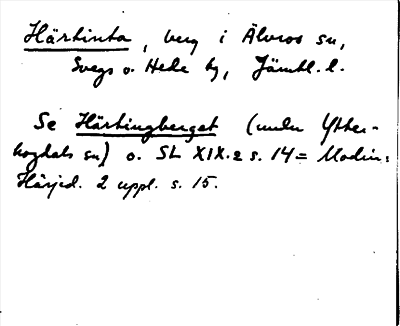 Härtinta, berg i Älvros sn,
Svegs o. Hede tg, Jämtl. l.
Se Härtingberget (under Ytter-
hogdals sn) o. SL XIX.2 s. 14 = Modin:
Härjed. 2 uppl. s. 15.